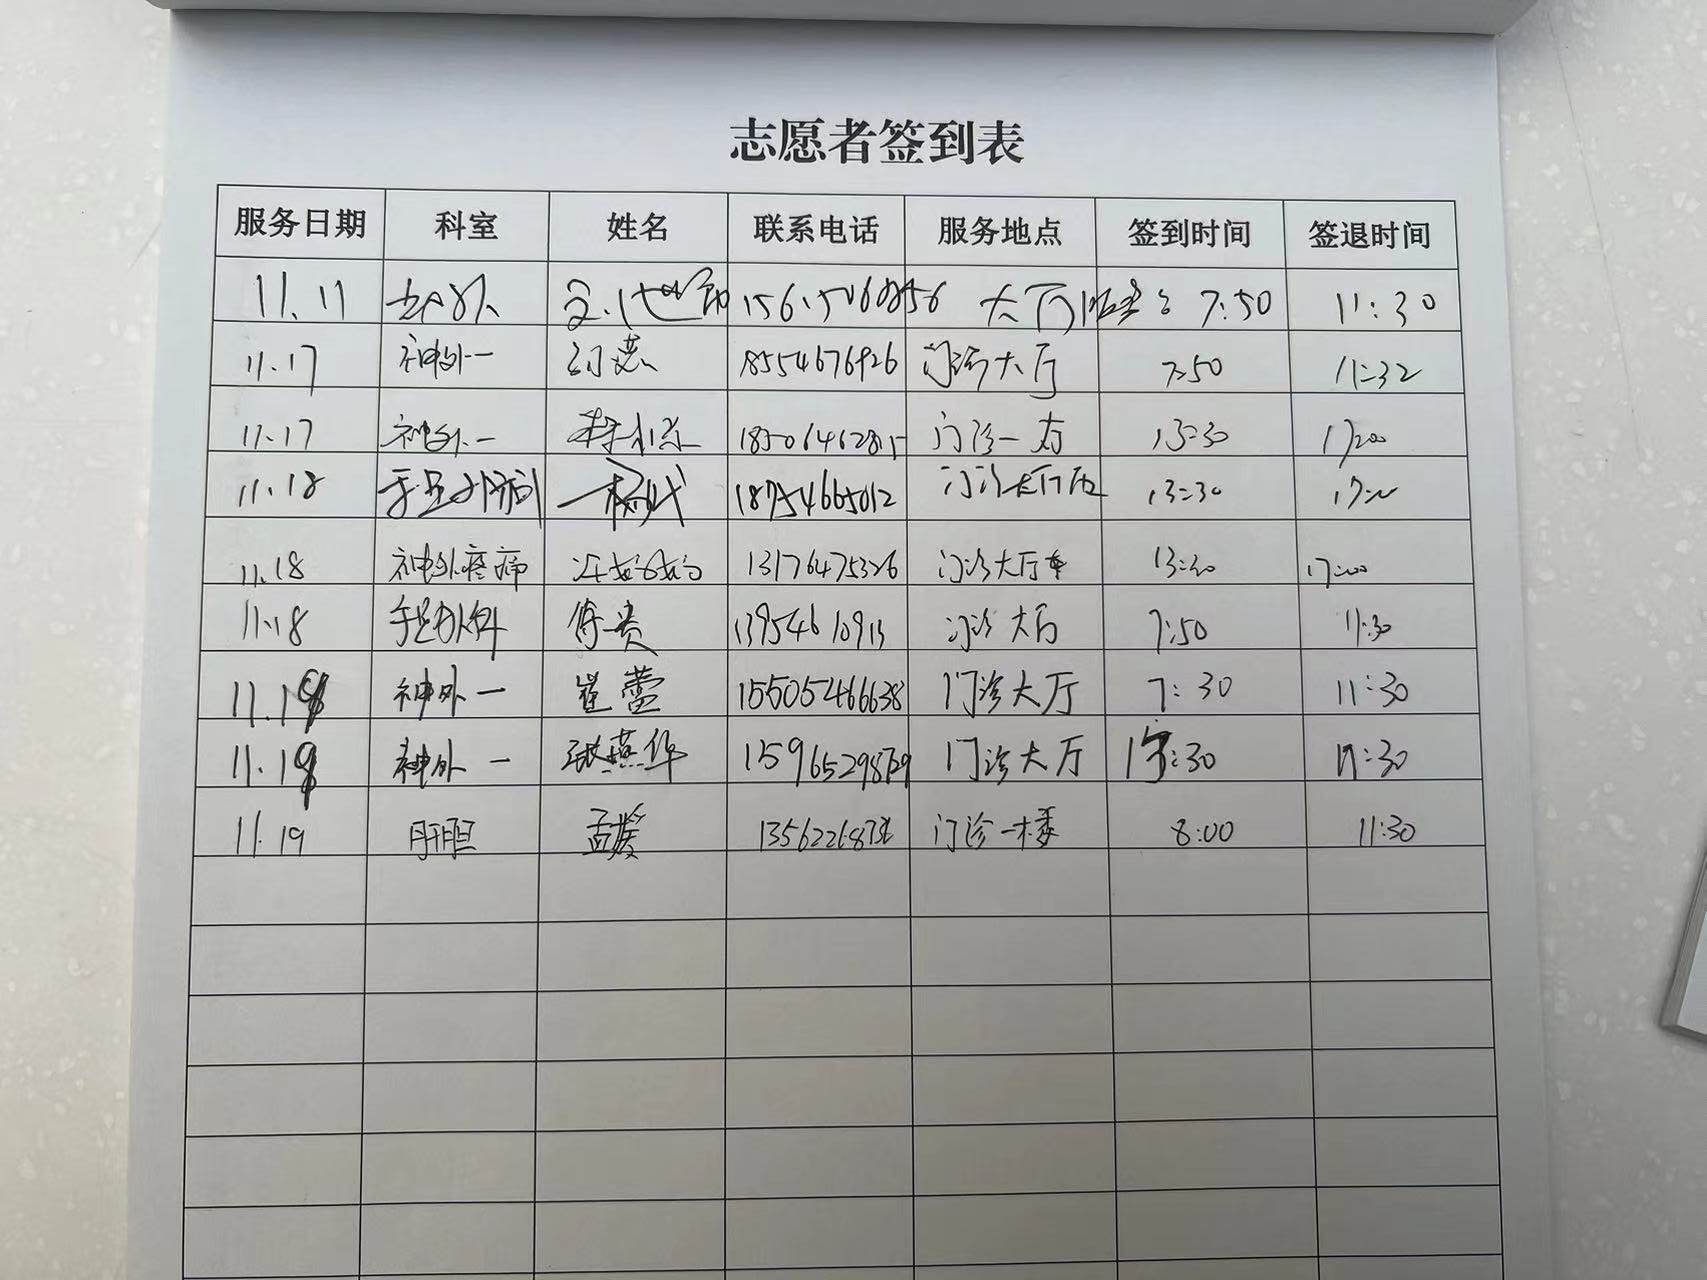 志愿者签到表
服务日期 科室 姓名 联系电话 服务地点 签到时间 签退时间
11.11 7:50 11:30
11.17 神外一 18554676926 门诊大厅 7:50 11:32
11.17 神外一 门诊一 13:30 17:00
11.18 手足外科 18754665012 门诊 13:30 17:00
11.18 神外疼痛 13176475326 门诊大厅 13:30 17:00
11.18 手足外科 13954610913 门诊大厅 7:50 11:30
11.19 神外一 崔蕾 15505466638 门诊大厅 7:30 11:30
11.19 神外一 张燕华 门诊大厅 13:30 17:30
11.19 肝胆 孟媛 门诊一楼 8:00 11:30